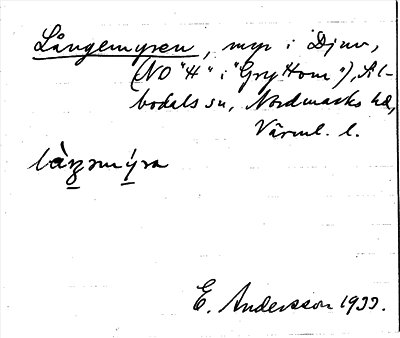 Långemyren, myr i Djuv,
(NO "H" i "Gryttom"), Sil-
bodals sn, Nordmarks hd,
Värml. l.
låŋəmýra
E. Andersson 1933.